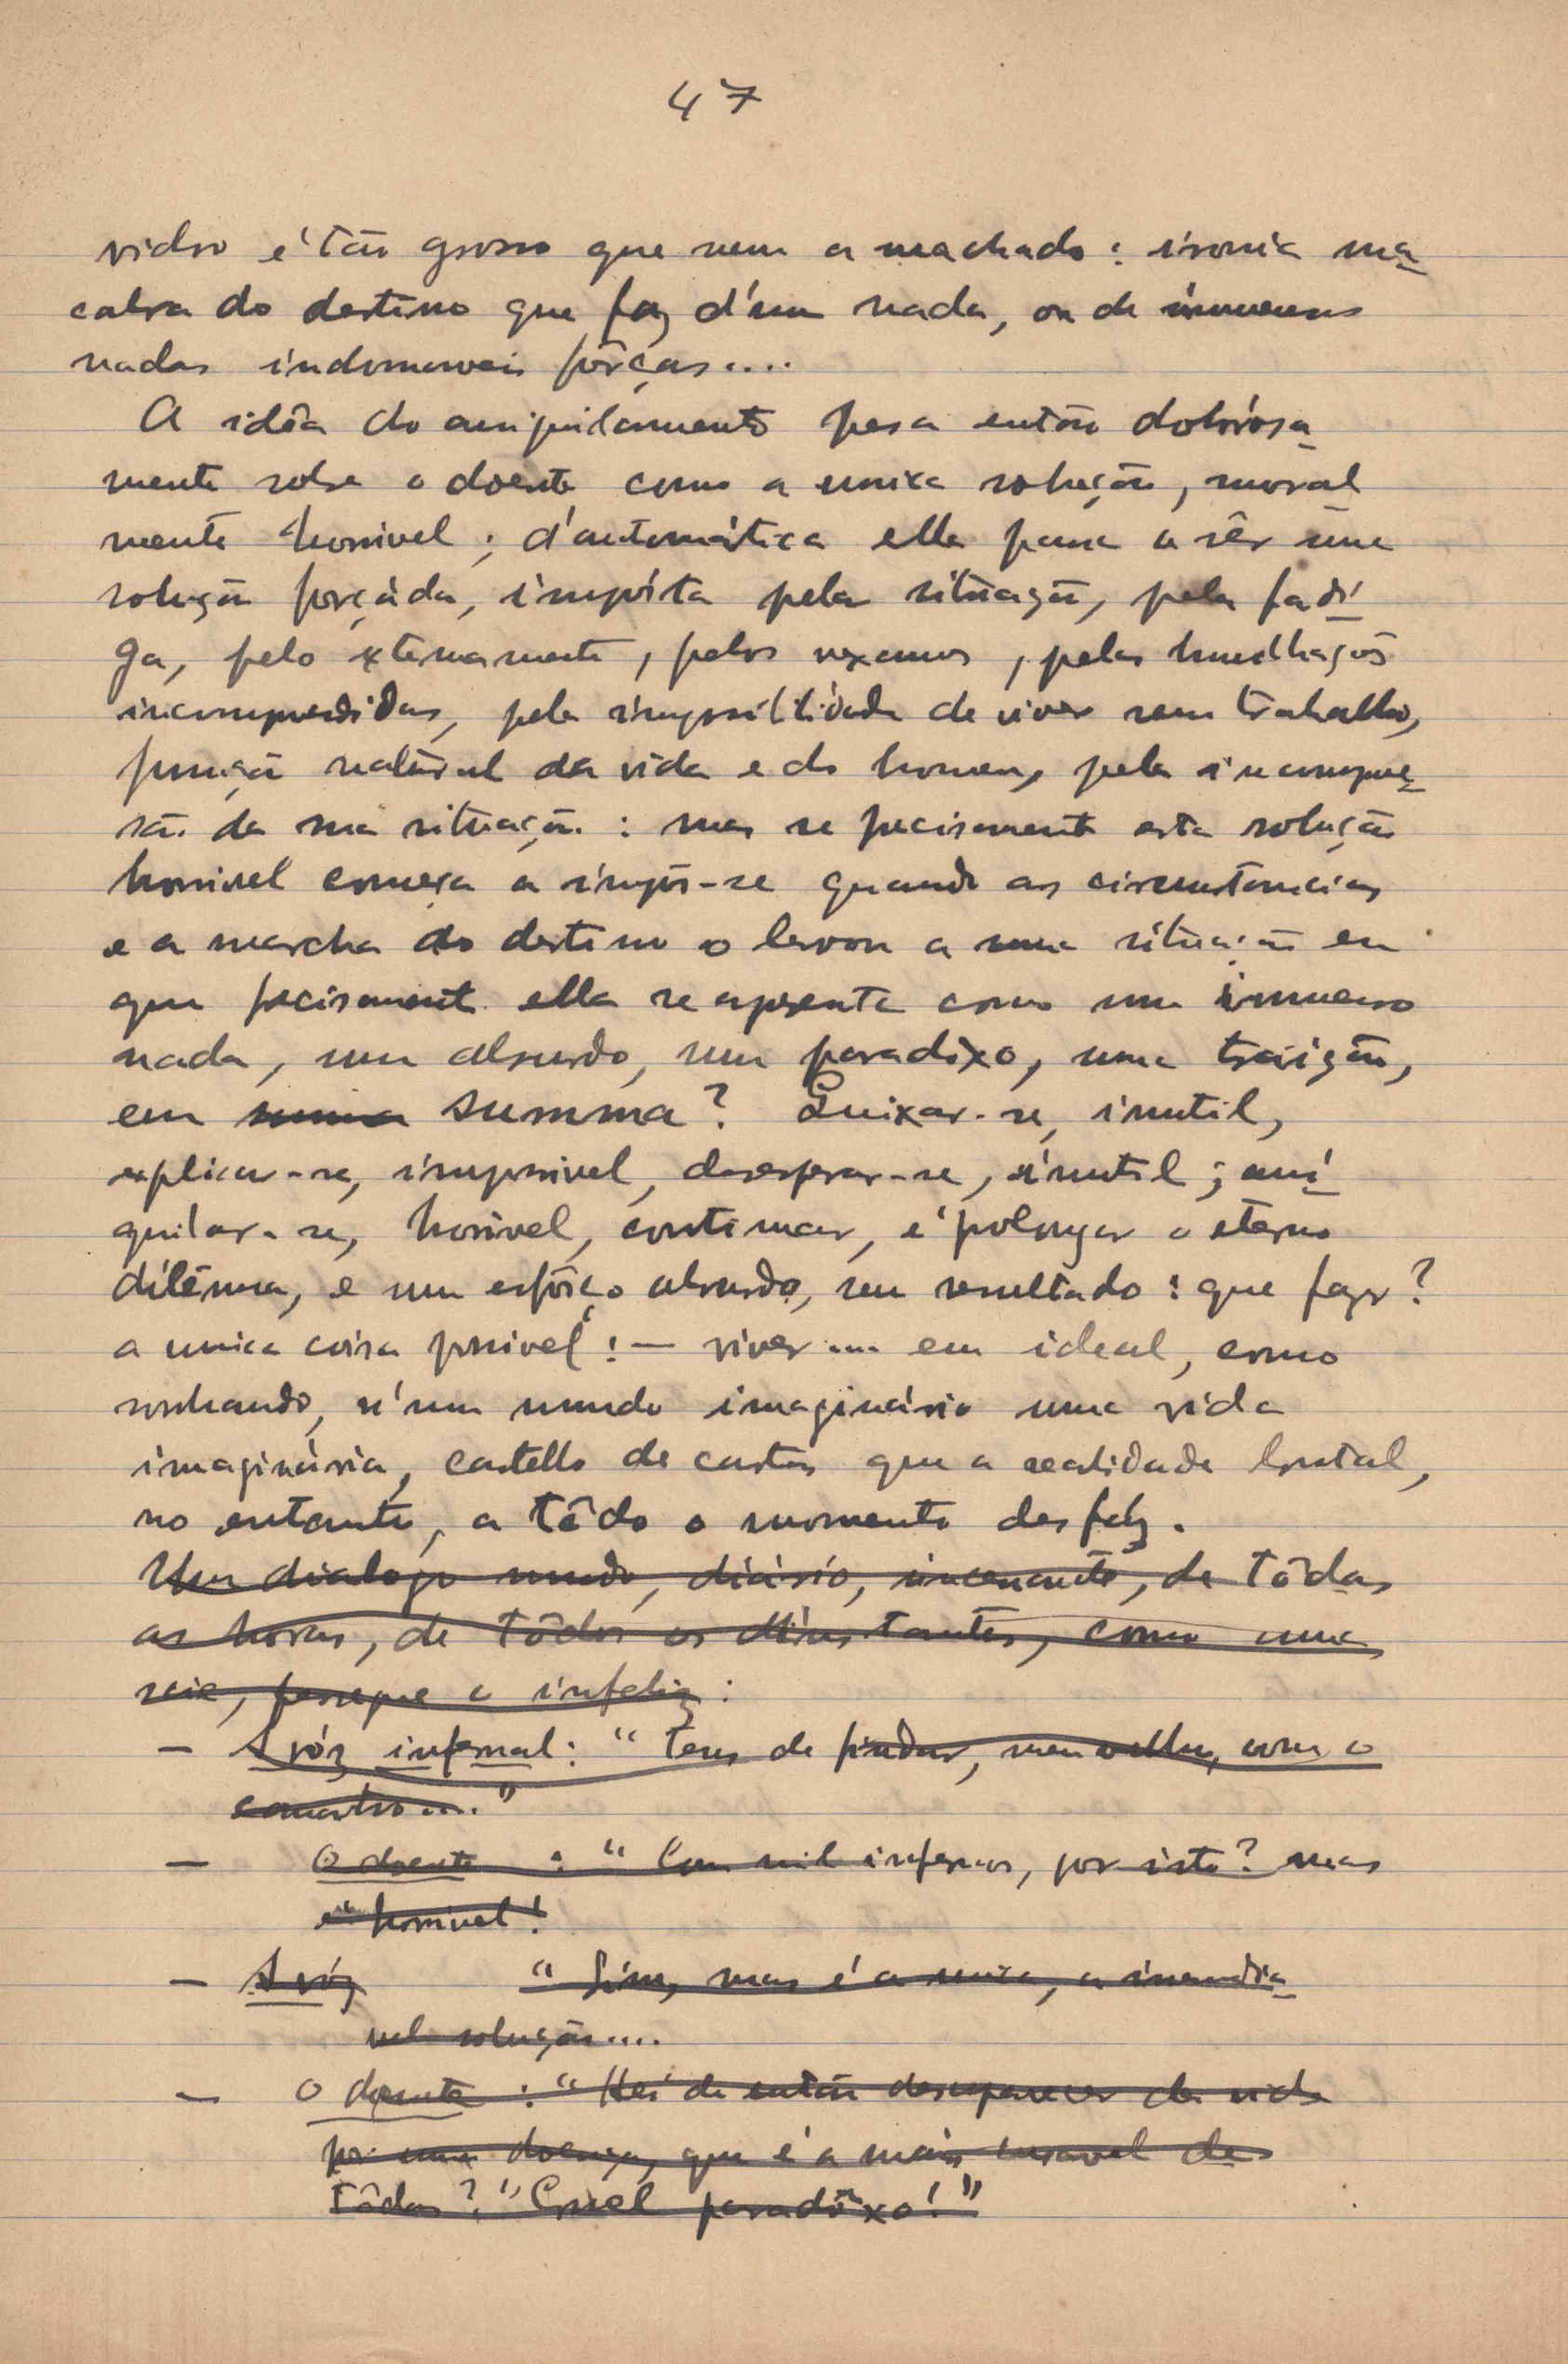 47
vidro é tão grosso que nem a machado: ironia ma-
cabra do destino que faz d'um nada, ou de immensos
nadas indomaveis fôrças....
A idêa do aniquilamento pesa então dolorósa-
mente sobre o doente como a unica solução, moral
mente horrivel; d'automática ella passa a sêr uma
solução forçáda, impósta pela situação, pela fadi-
ga, pelo externamente, pelos vexames, pelas humilhações
incomprendidas, pela impossibilidade de viver sem trabalho,
função natural da vida e do homem, pela incompre-
são da sua situação: mas se precisamente esta solução
horrivel começa a impôr-se quando as circumstancias
e a marcha do destino o levou a uma situação em
que precisament ella se apresenta como um immenso
nada, um absurdo, um paradoxo, uma traição,
em summa summa? Queixar-se, inutil,
explicar-se, impossivel, desesperar-se, inutil; ani-
quilar-se, horrivel, continuar, é prolongar o eterno
dilêma, e um esfôrço absurdo, sem resultado: que fazer?
a unica coisa possivel: — viver.... em ideal, como
sonhando, n'um mundo imaginário uma vida
imaginária, castello de cartas que a realidade brutal,
no entanto, a tôdo o momento desfaz.
Um dialogo mudo, diário, incessante, de tôdas
as horas, de tôdos os instantes, como uma
persegue o infeliz:
— A vóz infernal: "Tens de findar, meu velho, com o
canastro...."
— O doente: "Com mil infernos, por isto? mas
é horrivel!
— A vóz "Sim, mas é a unica, a inevitá-
vel solução....
— O doente: "Hei de então desaparecer da vida
por uma doença, que é a mais curavel de
tôdas?" Cruel paradôxo!"